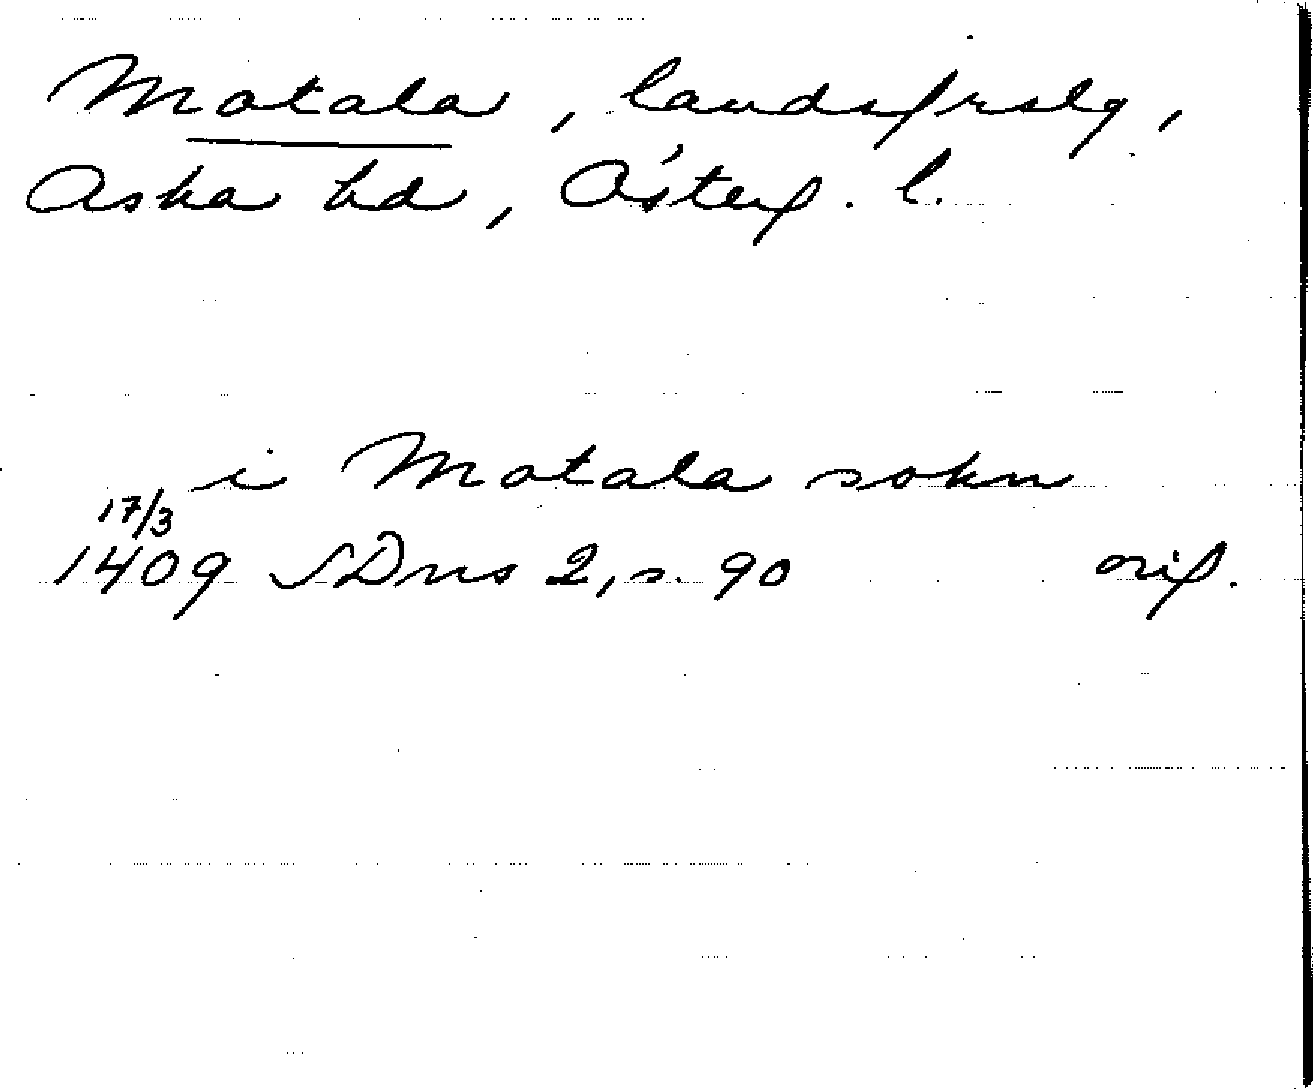 Motala, landsfrslg,
Aska hd, Österg. l.
i Motala sokn
17/3
1409 SDns 2, s. 90 orig.